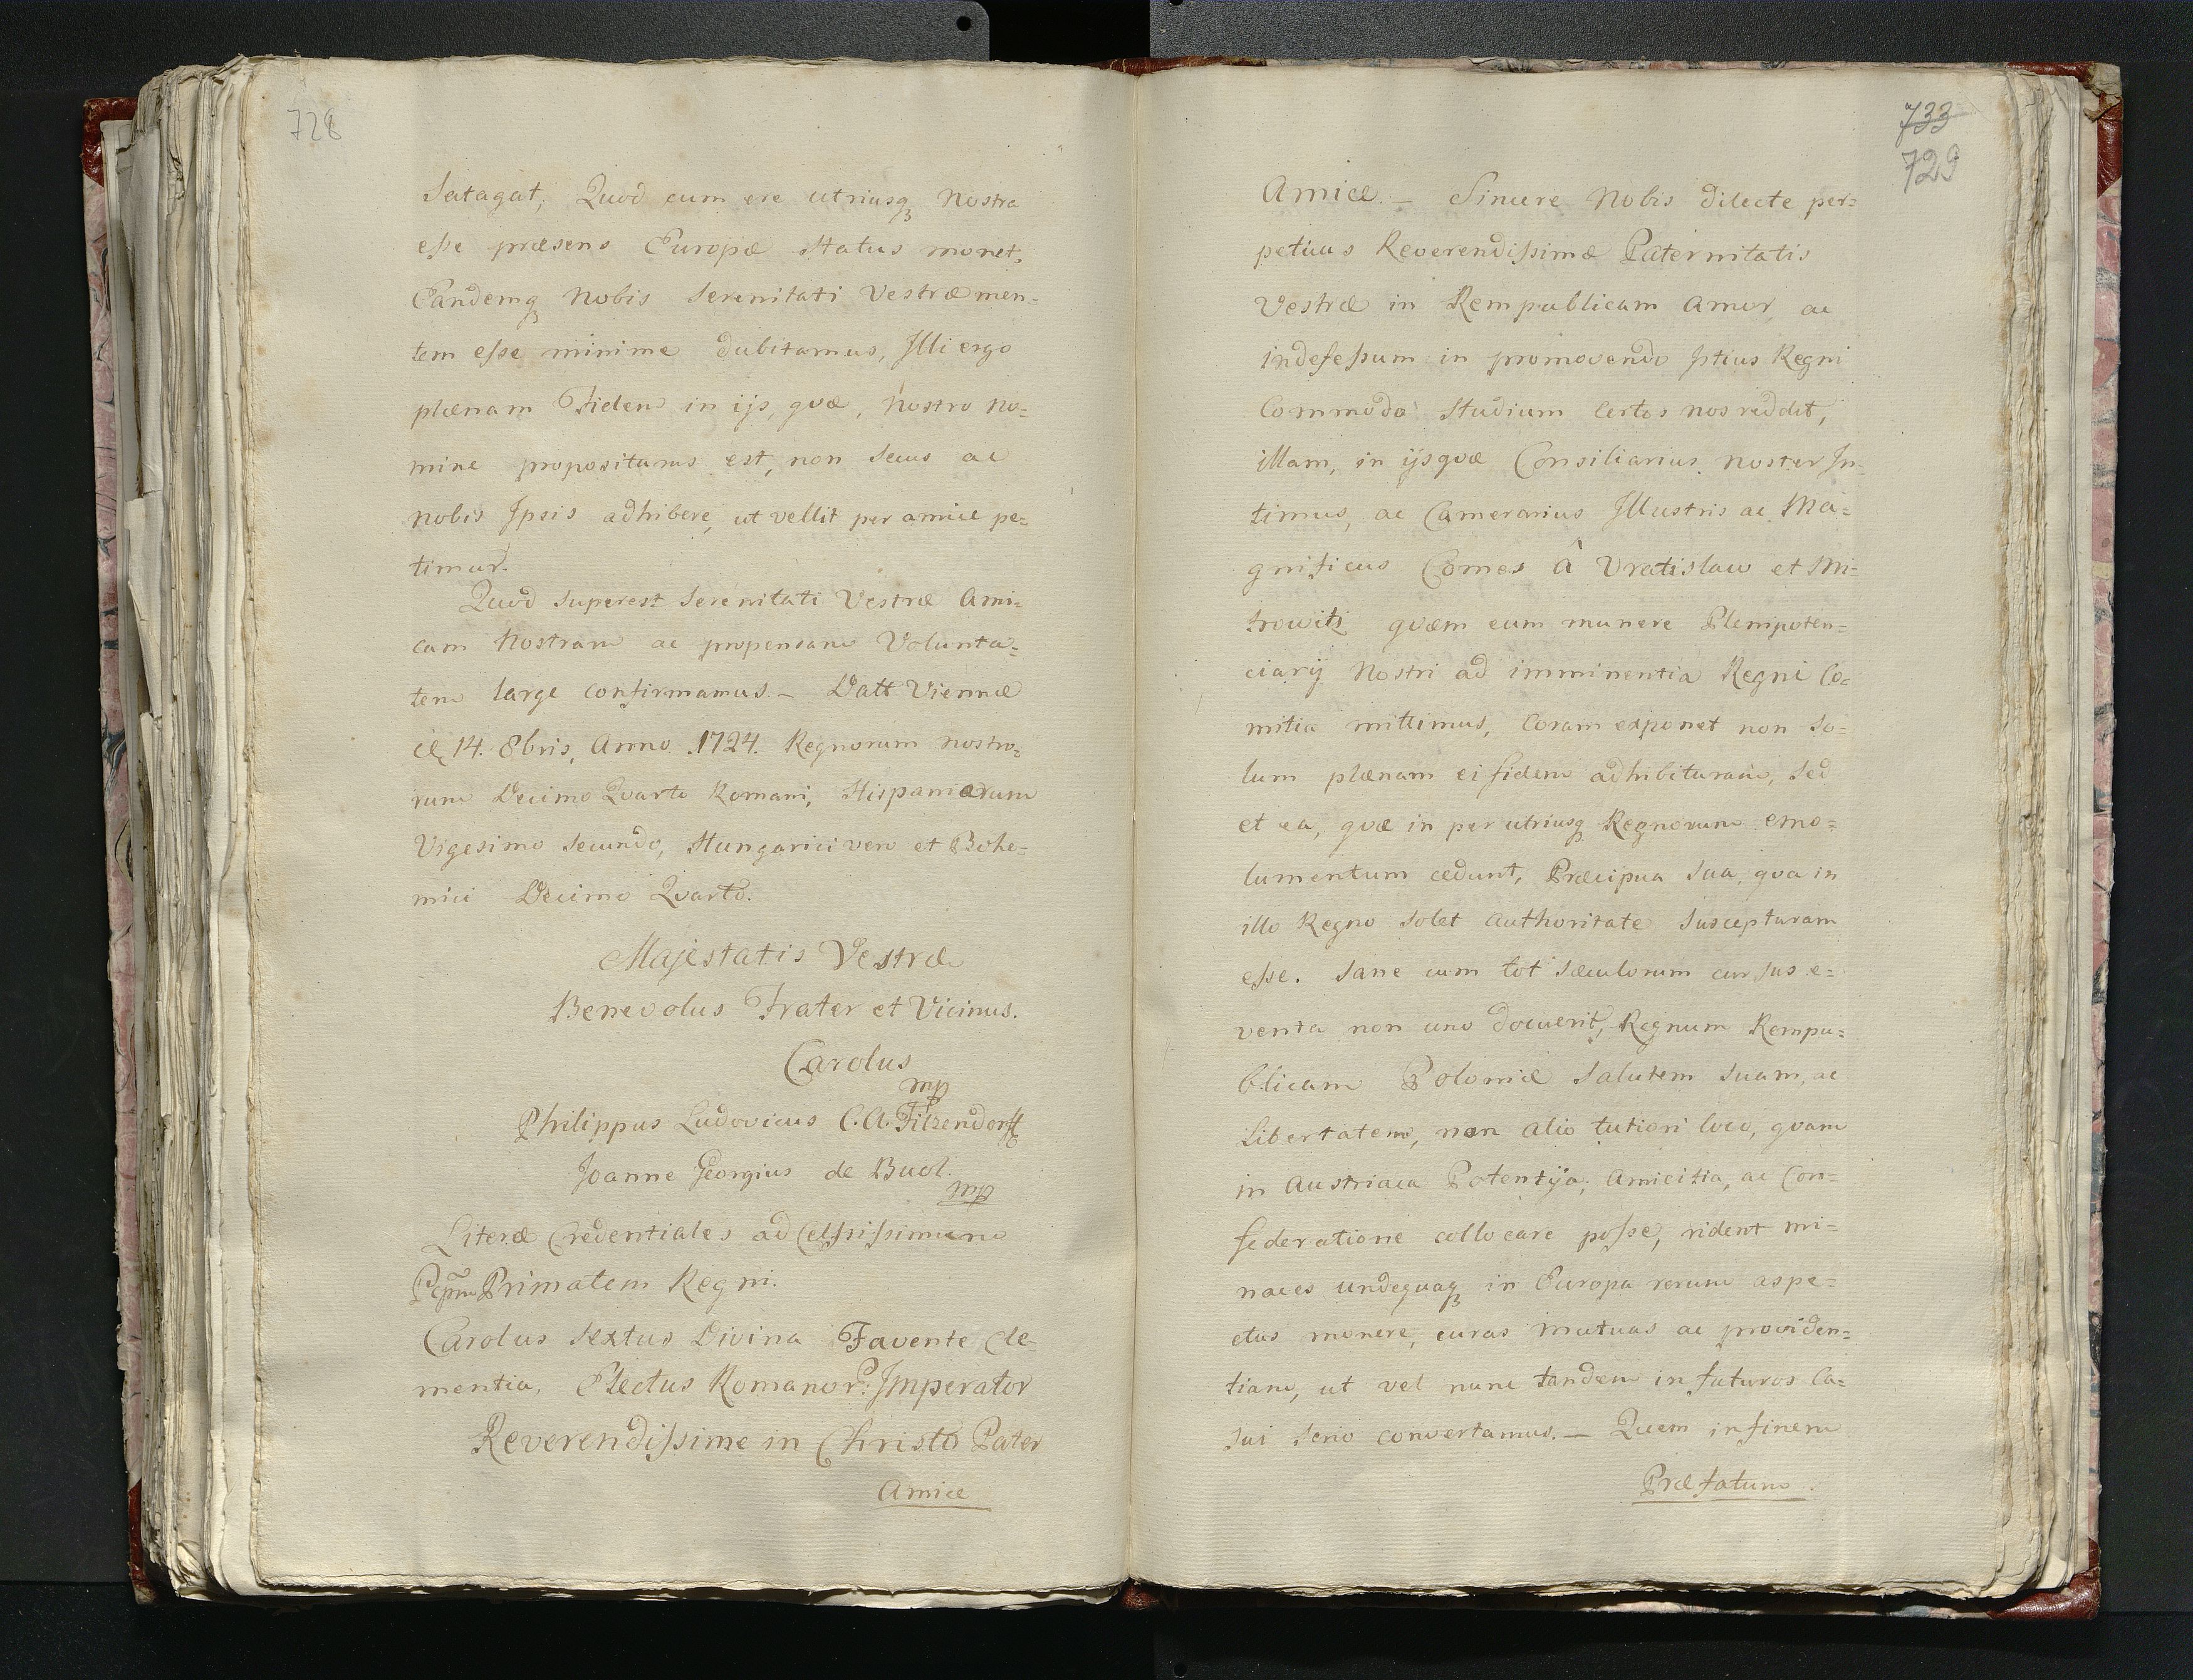 728
Satagat; Quod cum ere utriusq3 Nostra
esse præsens Europæ Status monet,
Eandemq3 Nobis Serenitati Vestræ men=
tem esse minime dubitamus, Illi ergo
plænam Fidem in ijs, qvæ, Nostro No=
mine propositurus est, non Secus ac
nobis Ipsis adhibere, ut vellit per amice pe=
timus.
Quod Superest Serenitati Vestræ Ami=
cam Nostram ac propensam Volunta=
tem large confirmamus. — Datt Viennæ
14. 8bris, Anno 1724. Regnorum Nostro=
rum Decimo Qvarto Romani, Hispaniarum
Vigesimo Secundo, Hungarici vero et Bohe=
mici Decimo Qvarto.
Majestatis Vestræ
Benevolus Frater et Vicinus.
Carolus
mp
Philippus Ludovicus C. A. Filzendorff
Joanne Georgius de Buol.
mp
Literæ Credentiales ad Celsissimum
Primatem Regni.
Carolus Sextus Divina Favente Cle-
mentia, Electus Romanor: Imperator
Reverendissime in Christo Pater
Amice
733
729
Amice. — Sincere Nobis dilecte per=
petuus Reverendissimæ Paternitatis
Vestræ in Rempublicam Amor, ac
indefessum in promovendo Istius Regni
Commoda Studium Certos nos reddit,
illam, in ijs qvæ Consiliarius Noster In=
timus, ac Camerarius Illustris ac Ma=
gnificus Comes â Vratislaw et Mi=
trowitz qvæm eum munere Plenipoten=
ciarij Nostri ad imminentia Regni Co=
mitia mittimus, Coram exponet non So=
lum plænam ei fidem adhibituram, Sed
et ea, qvæ in per utriusq3 Regnorum emo=
lumentum cedunt, Præcipua Sua, qva in
illo Regno Solet Authoritate Suscepturam
esse. Sane cum tot Sæculorum cursus e=
venta non uno docuerit, Regnum Rempu=
blicam Poloniæ Salutem Suam, ac
Libertatem, non alio tutiori loco, qvam
in Austriaca Potentija, Amicitia, ac Con=
federatione collocare posse, rident mi=
naces undequaq3 in Europa rerum aspe=
ctus monere, curas mutuas ac providen=
tiam, ut vel nunc tandem in futuros Ca=
sus Serio convertamus. — Quem in finem
Præfatum.